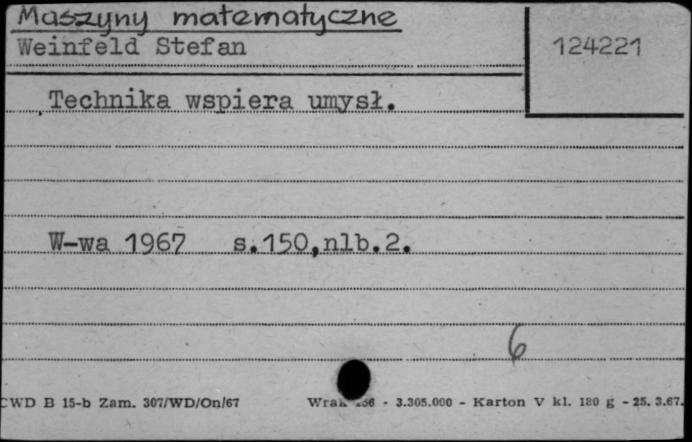 Maszyny matematyczne
Weinfeld Stefan
124221
Technika wspiera umysł.
W-wa 1967 s.150,nlb.2.
6
CWD B 15-b Zam. 307/WD/On/67 56 - 3.305.000 - Karton V kl. 180 g - 25. 3.67.